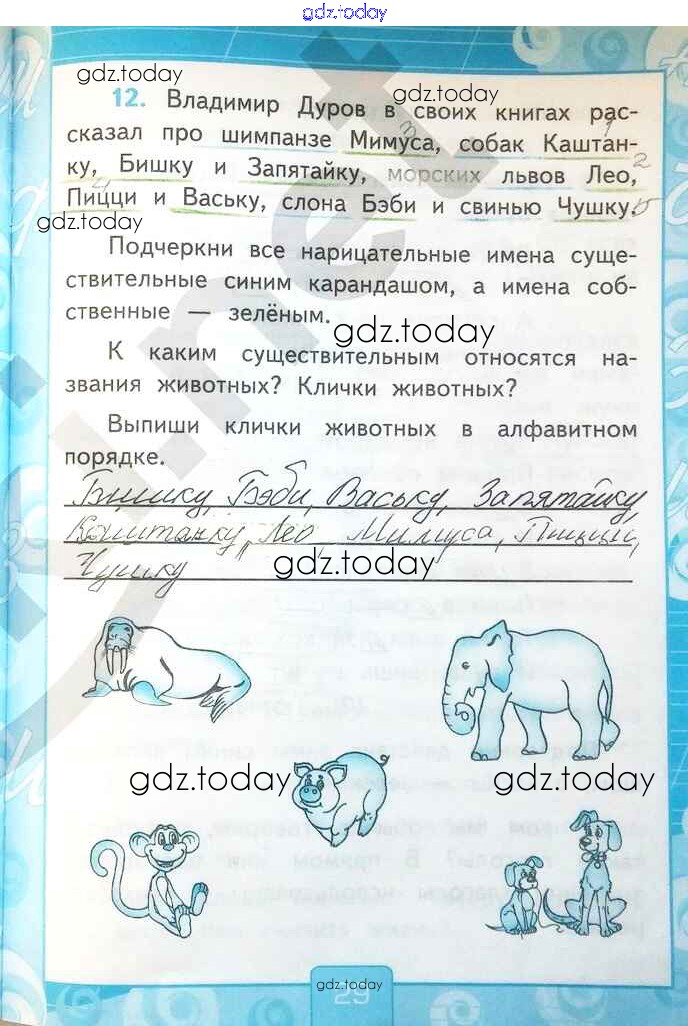 gdz.today
gdz.today
gdz.today
12. Владимир Дуров в своих книгах рас-
сказал про шимпанзе Мимуса, собак Каштан-
ку, Бишку и Запятайку, морских львов Лео,
Пицци и Ваську, слона Бэби и свинью Чушку.
gdz.today
Подчеркни все нарицательные имена суще-
ствительные синим карандашом, а имена соб-
ственные — зелёным.
gdz.today
К каким существительным относятся на-
звания животных? Клички животных?
Выпиши клички животных в алфавитном
порядке.
Бишку, Бэби, Ваську, Запятайку,
Каштанку, Лео, Мимуса, Пицци,
Чушку
gdz.today
gdz.today
gdz.today
gdz.today
29